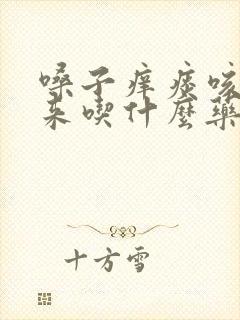 嗓子痒痰咳
来喫什麼藥
十方雪